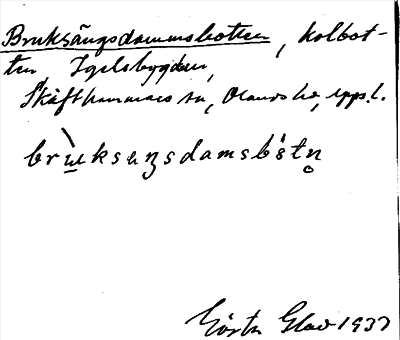 Bruksängsdammsbotten, kolbot-
ten Igelsbygden,
Skäfthammars sn, Olands hd, Upps. l.
brùksaŋsdamsbótn̥
Gösta Glad 1937